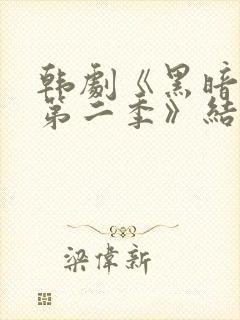 韩劇《黑暗
第二季》結
梁偉新